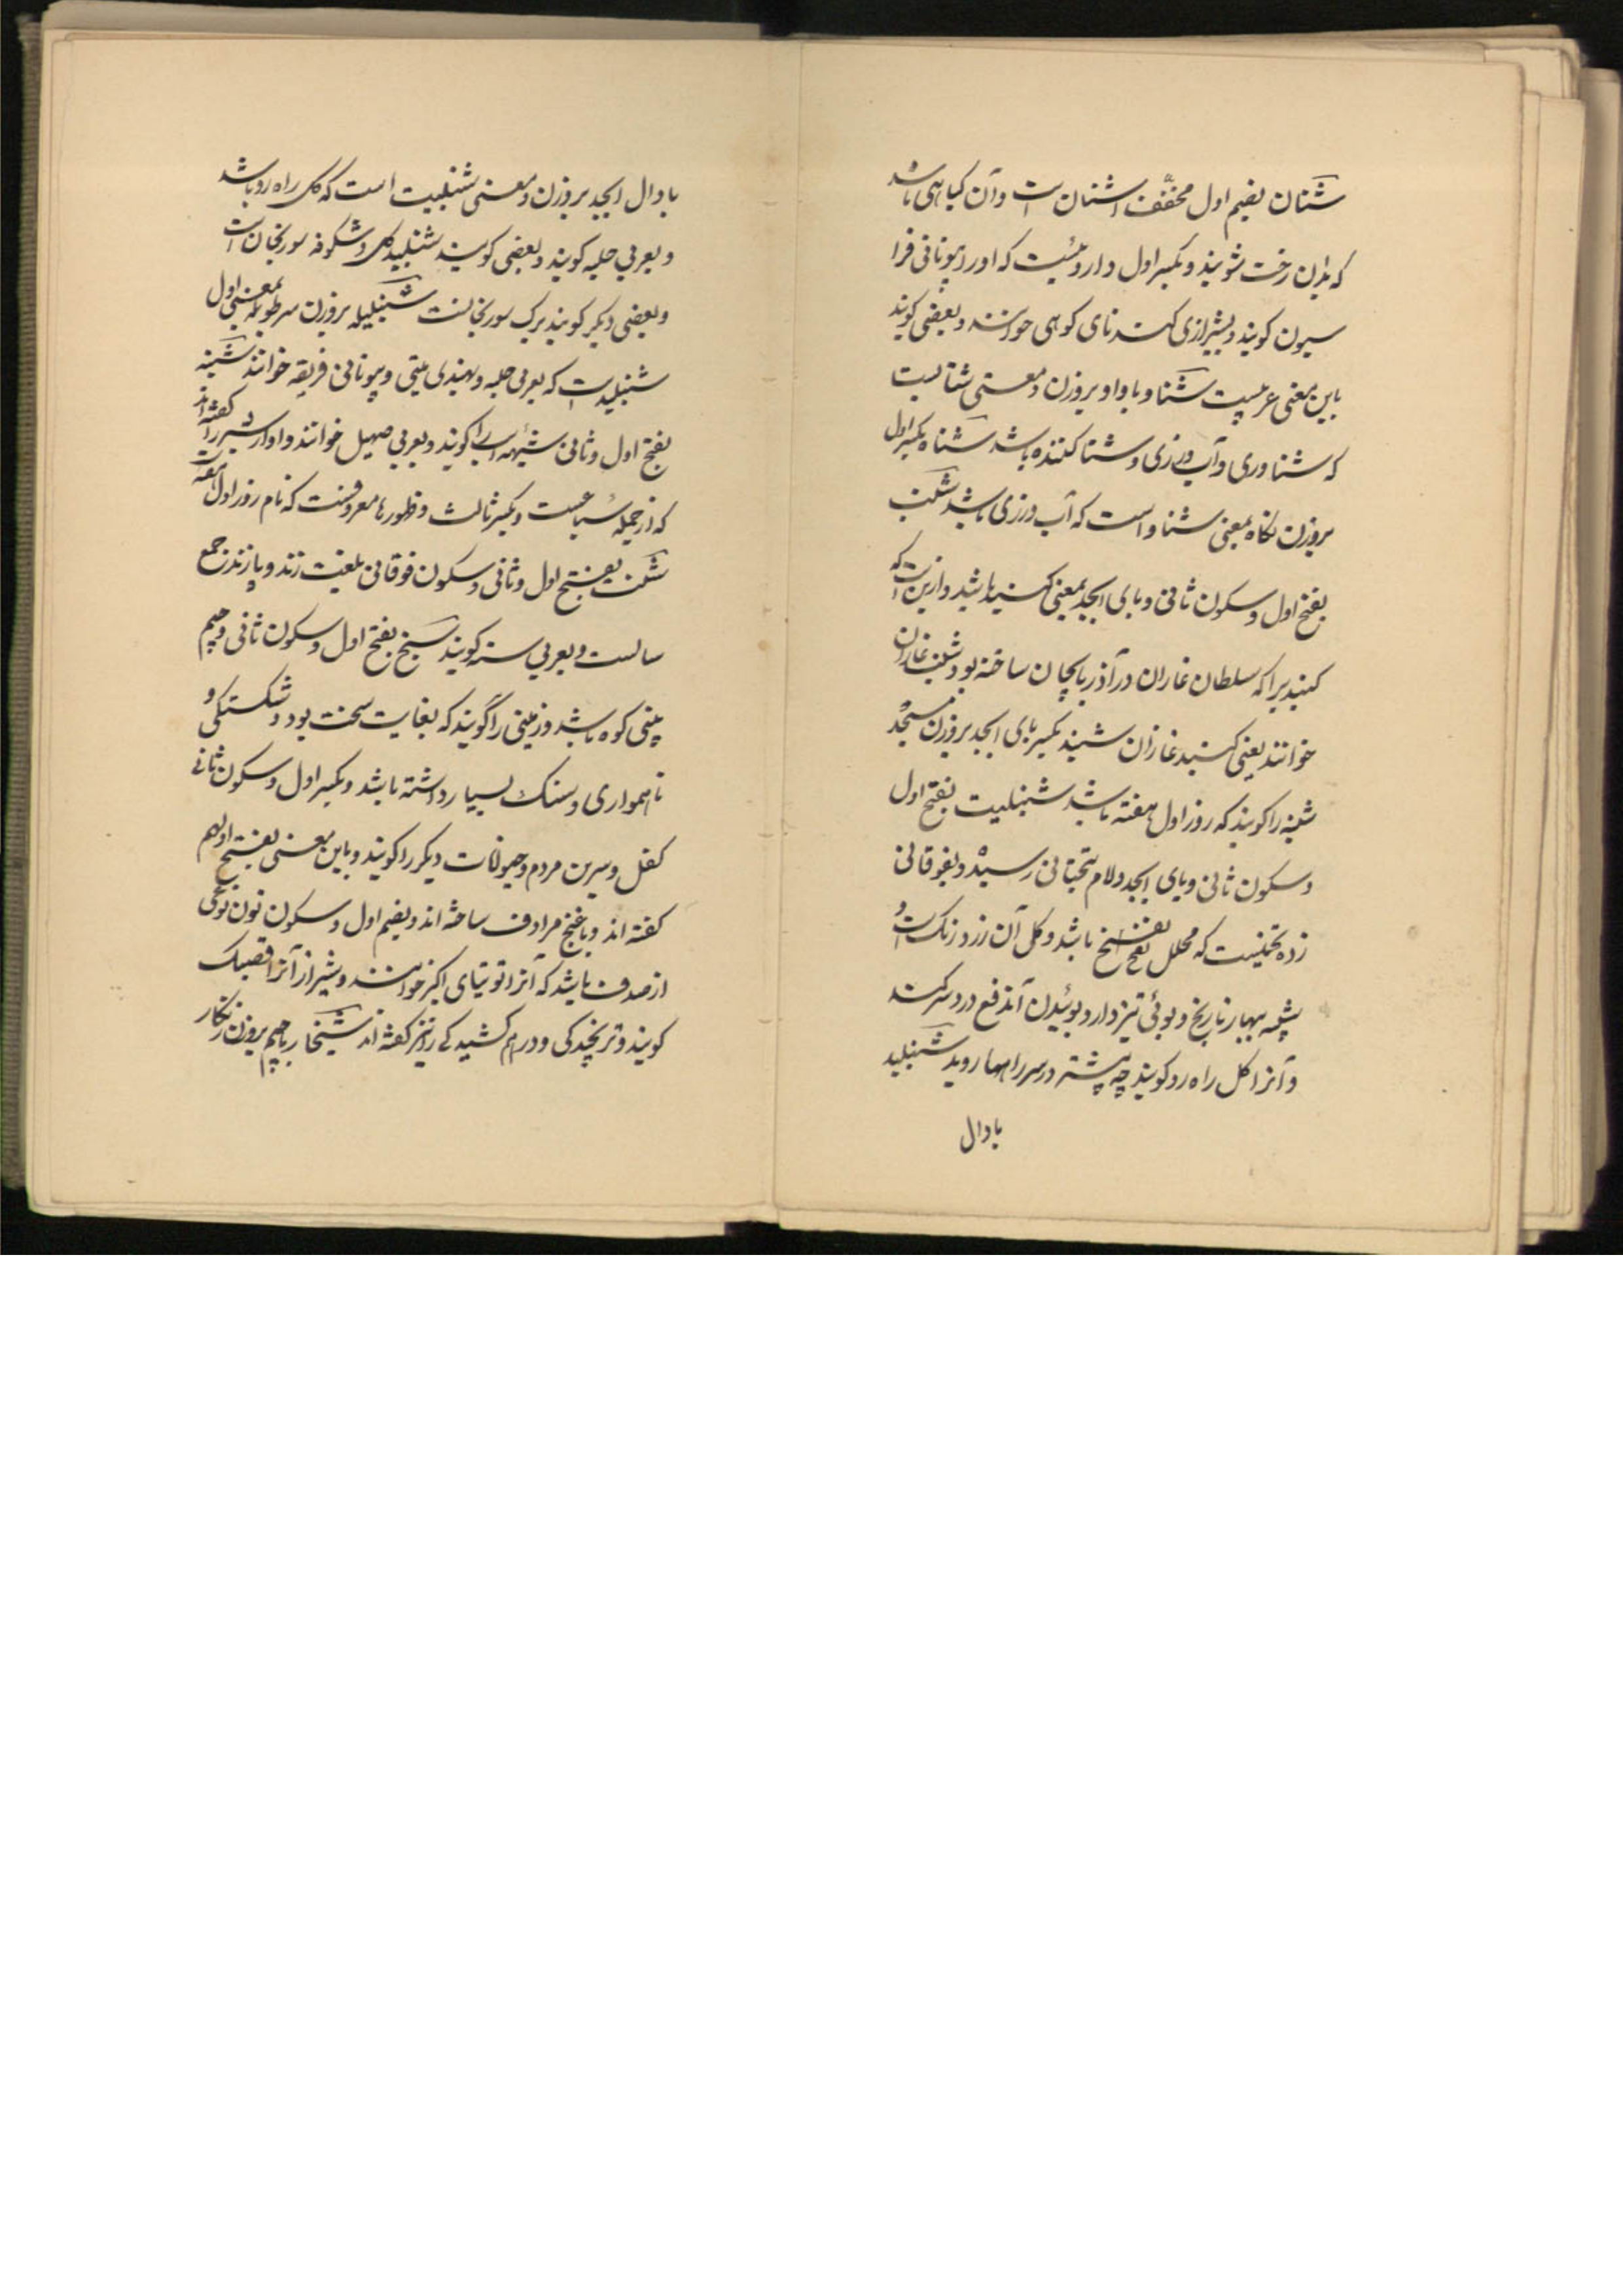 شنان بضم اول مخفف اشنان است و آن گیاهی باشد
که بدان رخت شویند و بکسر اول داروئیست که او را بیونانی فرا
سیون گویند و بشیرازی کندنای کوهی خوانند و بعضی گویند
باین معنی عربیست شناو با واو بروزن و معنی شناست
که شناوری و آب ورزی و شنا کننده باشد شناه بکسر اول
بروزن نکاه بمعنی شناو است که آب ورزی باشد شنب
بفتح اول و سکون ثانی و بای ابجد بمعنی کنبد باشد و ازین است که
کنبدیرا که سلطان غازان در آذربایجان ساخته بود شنب غازان
خوانند یعنی کنبد غازان شنبد بکسر بای ابجد بروزن مسجد
شنبه را کویند که روز اول هفته باشد شنبلیت بفتح اول
و سکون ثانی و بای ابجد و لام بتحتانی رسیده و بفوقانی
زده تخمیست که محلل نفخ باشد و کل آن زرد رنگ است و
شبیه ببهار نارنج و بوئی تیز دارد بوئیدن آن دفع درد سر کند
و آنرا کل راه رو کویند چه بیشتر در سر راهها روید شنبلید
با دال
با دال ابجد بروزن و معنی شنبلیت است که کل راه رو باشد
و بعربی حلبه کویند و بعضی کویند شنبلید کل و شکوفه سورنجان است
و بعضی دیکر کویند برک سورنجانست شنبلیله بروزن بمعنی اول
شنبلید است که بعربی حلبه و بهندی میتی و بیونانی فریقه خوانند شنبه
بفتح اول و ثانی شیهه اسب را کویند و بعربی صهیل خوانند و آواز شیر را گفته اند
که از جمله سباعست و بکسر ثالث و ظهور ها معروفست که نام روز اول هفته است
شنت بفتح اول و ثانی و سکون فوقانی بلغت زند و پازند جمع
سالست و بعربی سنه کویند شنج بفتح اول و سکون ثانی و جیم
بینی کوه باشد و زمینی را گویند که بغایت سخت بود و شکستگی و
ناهمواری و سنک بسیار داشته باشد و بکسر اول و سکون ثانی
کفل و سرین مردم و حیوانات دیکر را کویند و باین معنی بفتح اول هم
کفته اند و با غنج مرادف ساخته اند و بضم اول و سکون نون نوعی
از صدف باشد که آنرا توتیای اکبر خوانند و شیراز آنرا قصبک
کویند و ترنجیدکی و درهم کشیدکی را نیز کفته اند شنجار با جیم بروزن زنکار